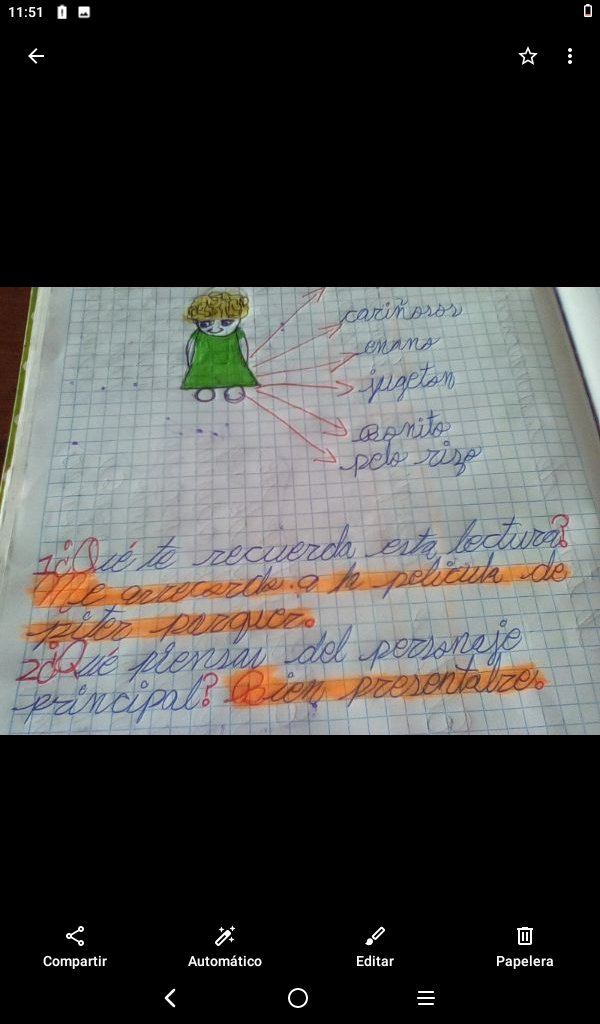 11:51
cariñosos
enano
jugeton
Bonito
pelo rizo
1¿Qué te recuerda esta lectura?
Me arrecorda a la pelicula de
piter parquer.
2¿Qué piensas del personaje
principal? Bien presentalre.
Compartir
Automático
Editar
Papelera